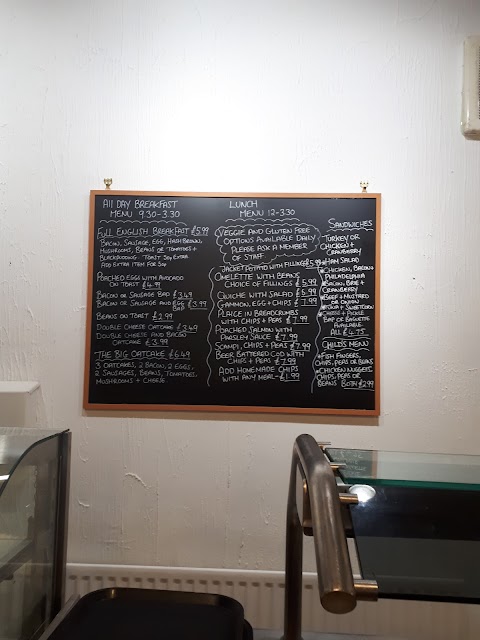 All DAY BREAKFAST
MENU 9.30-3.30
FULL ENGLISH BREAKFAST £5.99
BACON, SAUSAGE, EGG, HASH BROWN,
MUSHROOMS, BEANS OR TOMATOES +
BLACKPUDDING. TOAST 50p EXTRA
ADD EXTRA ITEM FOR 50p
POACHED EGGS WITH AVOCADO
ON TOAST £4.99
BACON OR SAUSAGE BAP £3.49
BACON OR SAUSAGE AND EGG £3.99
BAP
BEANS ON TOAST £2.99
DOUBLE CHEESE OATCAKE £3.49
DOUBLE CHEESE AND BACON
OATCAKE £3.99
THE BIG OATCAKE £6.49
3 OATCAKES, 2 BACON, 2 EGGS,
2 SAUSAGES, BEANS, TOMATOES,
MUSHROOMS + CHEESE
LUNCH
MENU 12-3.30
VEGGIE AND GLUTEN FREE
OPTIONS AVAILABLE DAILY
PLEASE ASK A MEMBER
OF STAFF
JACKET POTATO WITH FILLING £5.99
OMELETTE WITH BEANS
CHOICE OF FILLINGS £5.99
QUICHE WITH SALAD £5.99
GAMMON, EGG + CHIPS £7.99
PLAICE IN BREADCRUMBS
WITH CHIPS + PEAS £7.99
POACHED SALMON WITH
PARSLEY SAUCE £7.99
SCAMPI, CHIPS + PEAS £7.99
BEER BATTERED COD WITH
CHIPS + PEAS £7.99
ADD HOMEMADE CHIPS
WITH ANY MEAL - £1.99
SANDWICHES
TURKEY OR
CHICKEN +
CRANBERRY
HAM SALAD
CHICKEN, BACON +
PHILADELPHIA
BACON, BRIE +
CRANBERRY
BEEF + MUSTARD
OR ONION
TUNA + SWEETCORN
CHEESE + PICKLE
BAP OR BAGUETTE
AVAILABLE
ALL £4.75
CHILDS MENU
FISH FINGERS,
CHIPS, PEAS OR BEANS
CHICKEN NUGGETS,
CHIPS, PEAS OR
BEANS BOTH £2.99